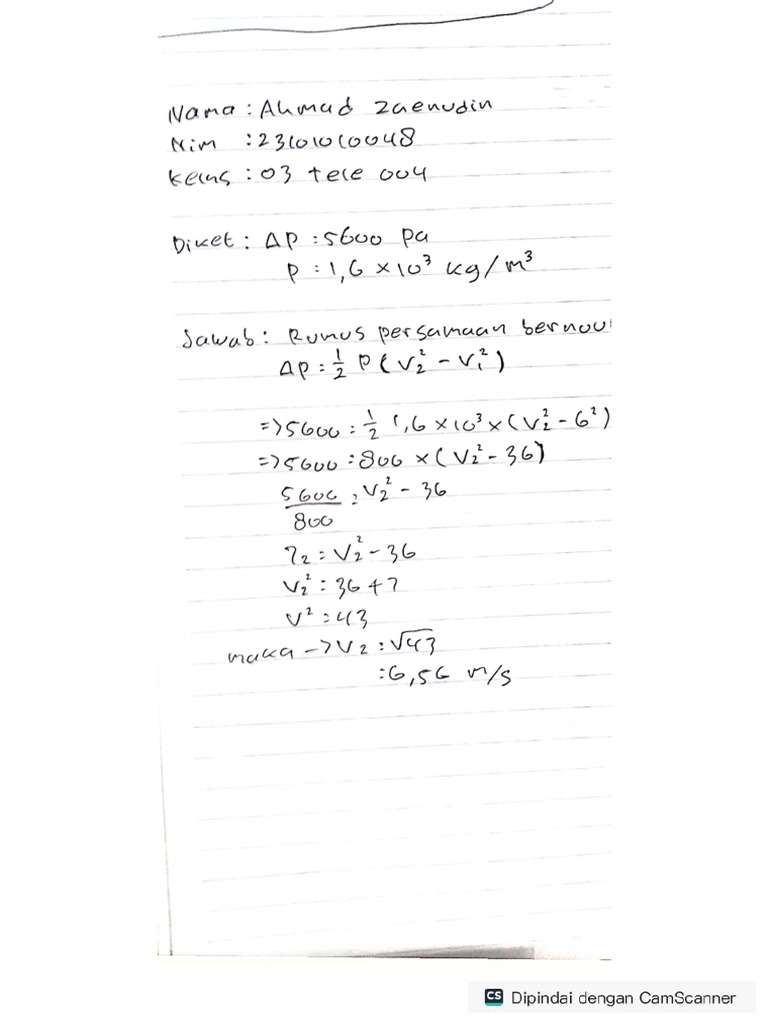 Nama : Ahmad Zaenudin
Nim : 23101010048
Kelas : 03 tele 004
Diket : Δp : 5600 pa
p : 1,6 × 10³ kg/m³
Jawab : Rumus persamaan bernoul
Δp : ½ p (v₂² - v₁²)
=> 5600 : ½ 1,6 × 10³ × (v₂² - 6²)
=> 5600 : 800 × (v₂² - 36)
5600/800 : v₂² - 36
7₂ = v₂² - 36
v₂² : 36 + 7
v² : 43
maka -> v₂ : √43
: 6,56 m/s
CS Dipindai dengan CamScanner